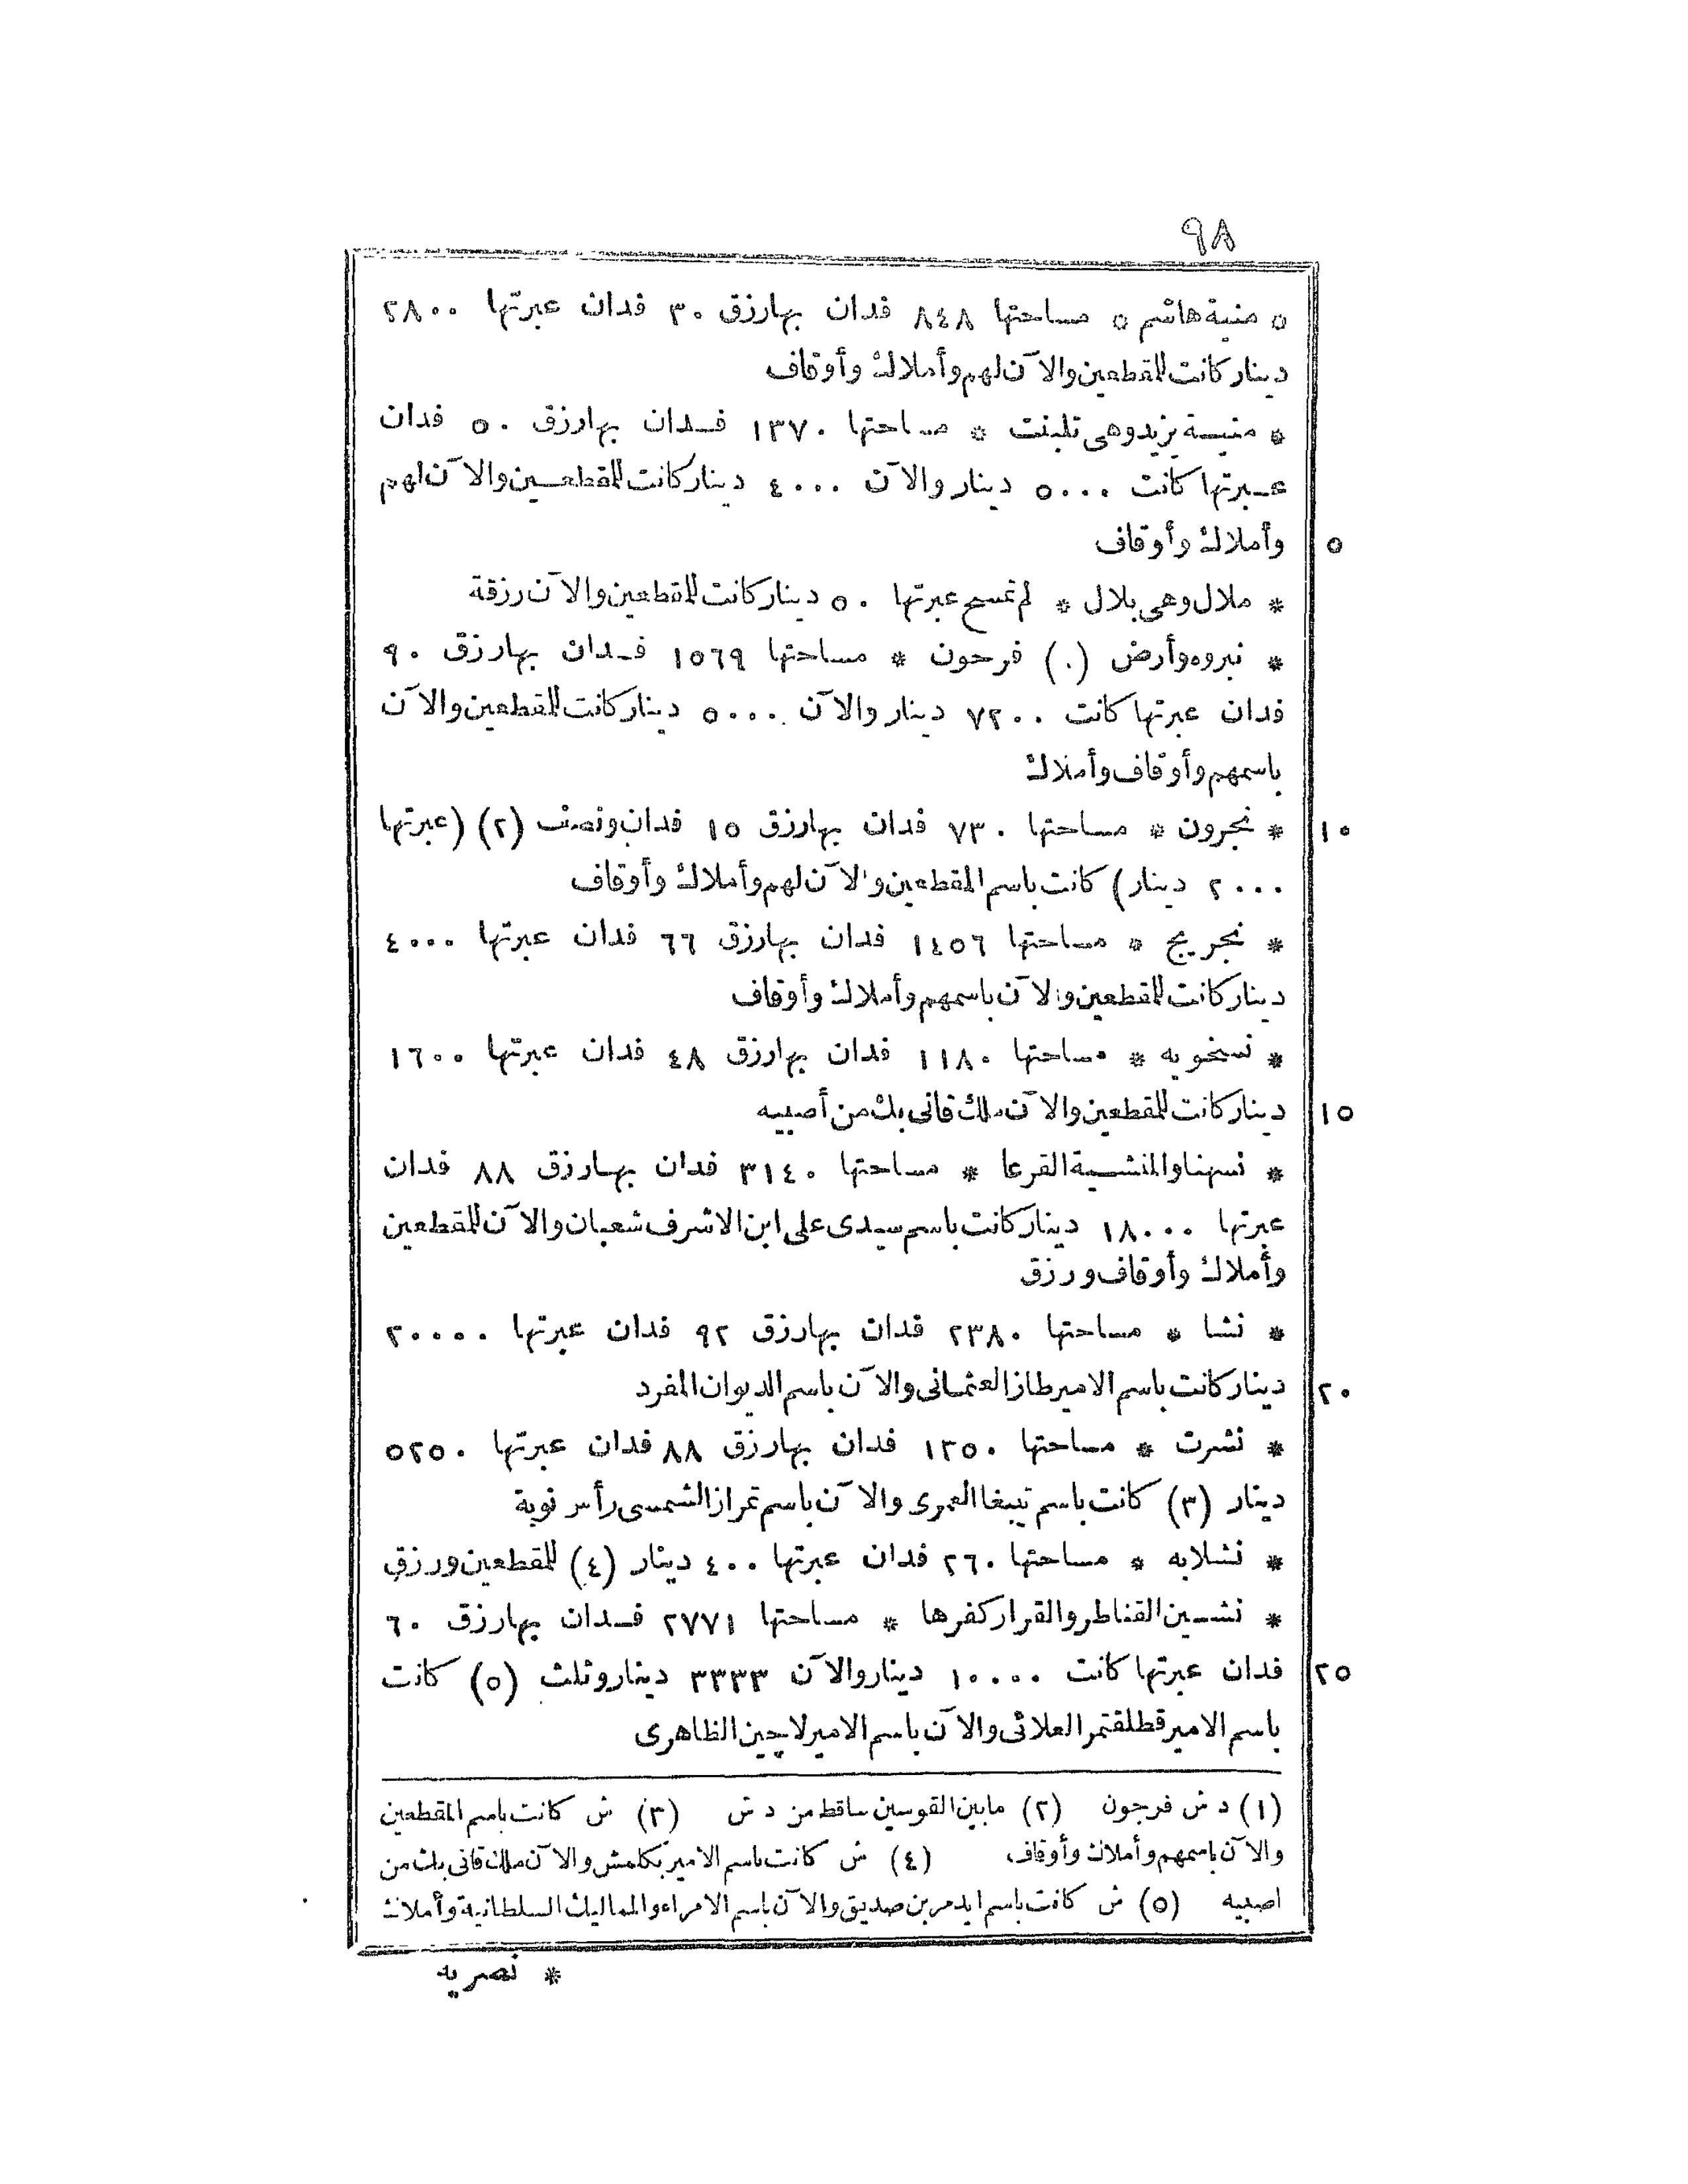 ٩٨
* منية هاشم * مساحتها ٨٤٨ فدان بها رزق ٣٠ فدان عبرتها ٢٨٠٠
دينار كانت للمقطعين والآن لهم وأملاك وأوقاف
* منية يزيد وهى تلبنت * مساحتها ١٣٧٠ فدان بها رزق ٥٠ فدان
عبرتها كانت ٥٠٠٠ دينار والآن ٤٠٠٠ دينار كانت للمقطعين والآن لهم
٥ وأملاك وأوقاف
* ملال وهى بلال * لم تمسح عبرتها ٥٠ دينار كانت للمقطعين والآن رزقة
* نبروه وأرض (٠) فرحون * مساحتها ١٥٦٩ فدان بها رزق ٩٠
فدان عبرتها كانت ٧٢٠٠ دينار والآن ٥٠٠٠ دينار كانت للمقطعين والآن
باسمهم وأوقاف وأملاك
١٠ * نجرون * مساحتها ٧٣٠ فدان بها رزق ١٥ فدان ونصف (٢) (عبرتها
٢٠٠٠ دينار) كانت باسم المقطعين والآن لهم وأملاك وأوقاف
* نجريج * مساحتها ١٤٥٦ فدان بها رزق ٦٦ فدان عبرتها ٤٠٠٠
دينار كانت للمقطعين والآن باسمهم وأملاك وأوقاف
* نسخويه * مساحتها ١١٨٠ فدان بها رزق ٤٨ فدان عبرتها ١٦٠٠
١٥ دينار كانت للمقطعين والآن ملك قانى بك من أصبيه
* نسهنا والمنشية القرعا * مساحتها ٣١٤٠ فدان بها رزق ٨٨ فدان
عبرتها ١٨٠٠٠ دينار كانت باسم سيدى على ابن الاشرف شعبان والآن للمقطعين
وأملاك وأوقاف ورزق
* نشا * مساحتها ٢٣٨٠ فدان بها رزق ٩٢ فدان عبرتها ٢٠٠٠٠
٢٠ دينار كانت باسم الامير طاز العثمانى والآن باسم الديوان المفرد
* نشرت * مساحتها ١٢٥٠ فدان بها رزق ٨٨ فدان عبرتها ٥٢٥٠
دينار (٣) كانت باسم تيبغا العمرى والآن باسم تمراز الشمسى رأس نوبة
* نشلابه * مساحتها ٢٦٠ فدان عبرتها ٤٠٠ دينار (٤) للمقطعين ورزق
* نشين القناطر والقرار كفرها * مساحتها ٢٧٧١ فدان بها رزق ٦٠
٢٥ فدان عبرتها كانت ١٠٠٠٠ دينار والآن ٣٣٣٣ دينار وثلث (٥) كانت
باسم الامير قطلقتمر العلائى والآن باسم الامير لاچين الظاهرى
(١) د ش فرجون (٢) ما بين القوسين ساقط من د ش (٣) ش كانت باسم المقطعين
والآن باسمهم وأملاك وأوقاف (٤) ش كانت باسم الامير بكلمش والآن ملك قانى بك من
اصبيه (٥) ش كانت باسم ايدمر بن صديق والآن باسم الامراء والمماليك السلطانية وأملاك
* نصريه